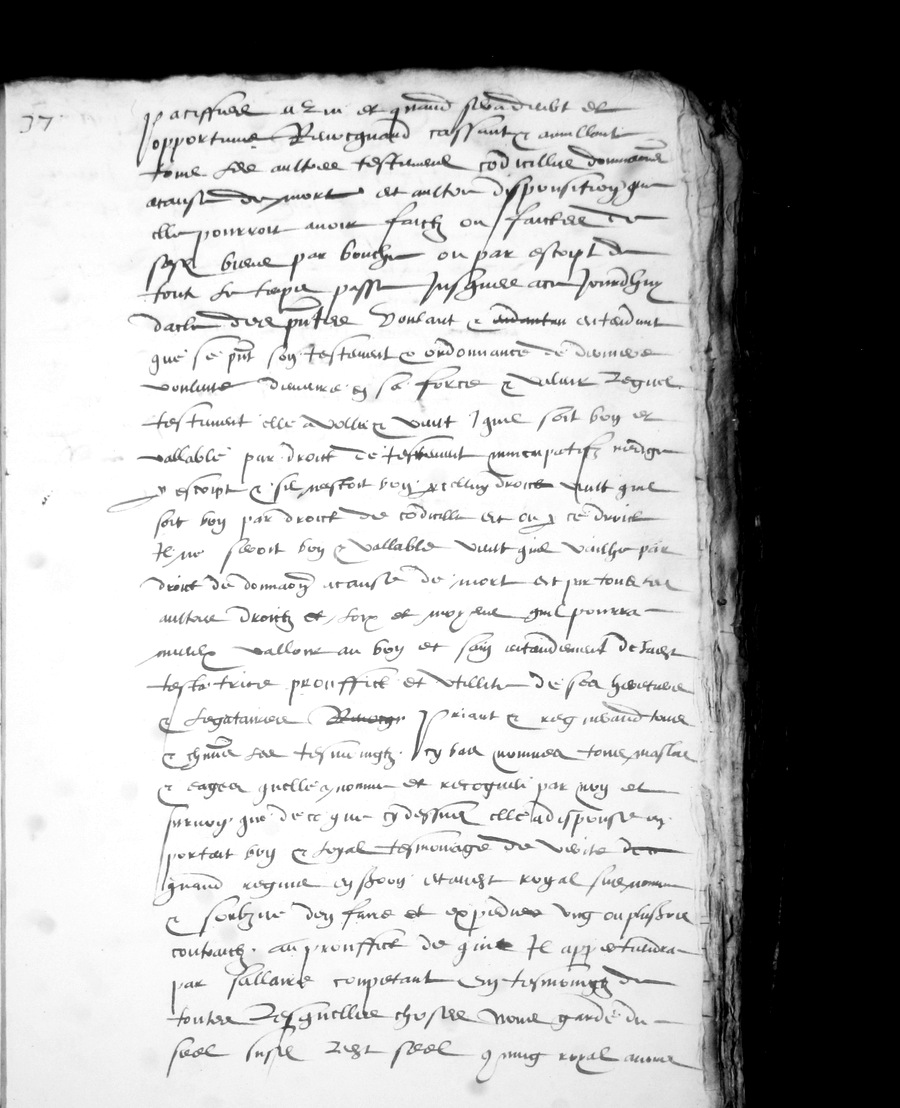 37
pacifficq et quand sera deubt et
opportune Revocquand cassant & anullant
tous les aultres testamens codicilles donnations
a cause de mort et aultre disposition que
elle pourroit avoir faictz ou faictes de
par bouche ou par escript de
tout le temps passe Jusques a ce Jourdhuy
dacte des pntes Voulant & entendant
que se pnt soy testament & ordonnance de derniere
voulunte demeure en sa force & valeur Lequel
testament elle a vollu & veult quil soit boy et
vallable par droict de testament nuncupatif redige
p escript & sil nestoit boy par icelluy droict veult quil
soit boy par droict de codicille et ou p ce droict
Il ne seroit boy & vallable veult quil vailhe par
droict de donnaoy a cause de mort et par tous les
aultres droictz et loix et moyens quil pourra
mieulx valloir au boy et sain entendement de ladt
testatrice prouffict et utillite de ses heretiers
& legataires Priant & requerand tous
& chuns les tesmoingtz cy bas nommes tous masles
& eages quelle a nomme et recogneu par moy et
que de ce que cy dessus elle a dispouse en
portait boy & loyal tesmoniage de verite
quand requis en seroy et audt royal
& soubzne dey faire et expedier ung ou plusrs
contractz au prouffict de qui Il appertiendra
par sallaire conpetant En tesmoingtz de
toutes Lesquelles choses Nous garde du
seel susd Ledt seel royal avons